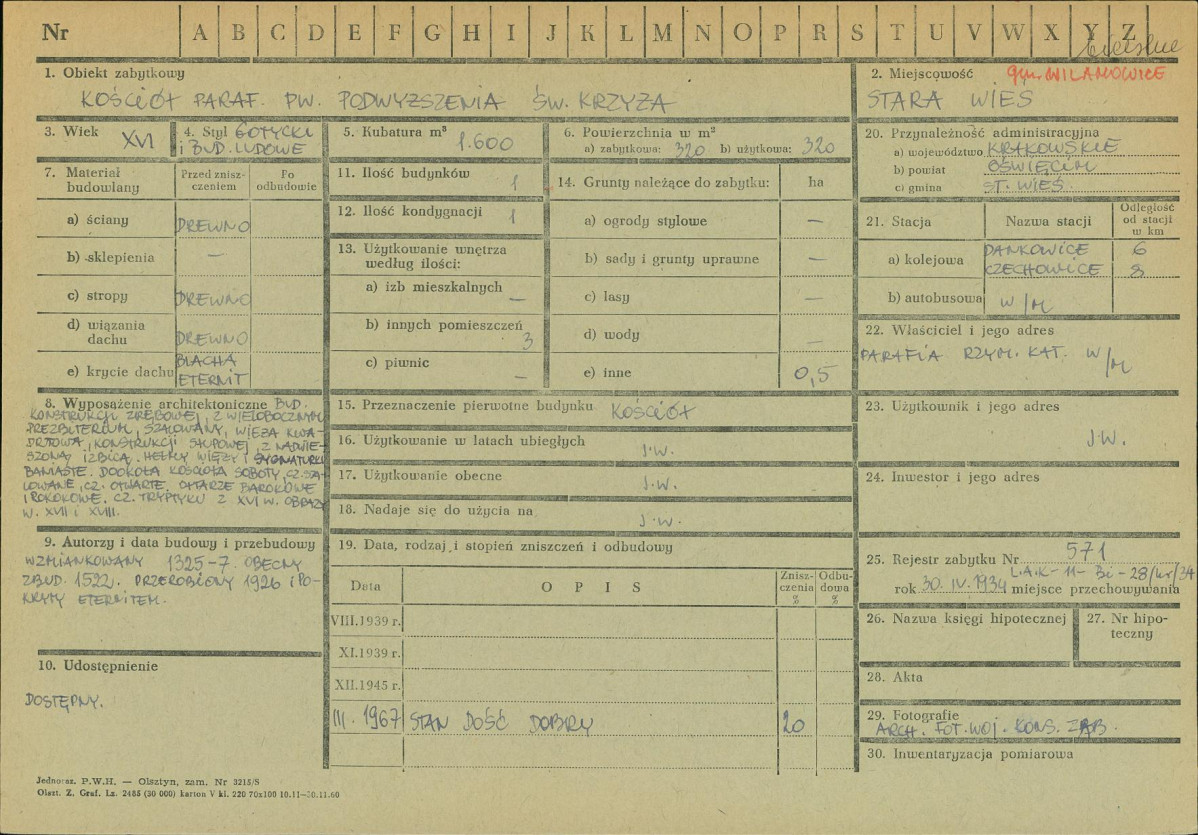 Nr A B C D E F G H I J K L M N O P R S T U V W X Y Z
bielskie
1. Obiekt zabytkowy
KOŚCIÓŁ PARAF. PW. PODWYŻSZENIA ŚW. KRZYŻA
2. Miejscowość gm. WILAMOWICE
STARA WIEŚ
3. Wiek XVI
4. Styl GOTYCKI
i BUD. LUDOWE
5. Kubatura m³ 1.600
6. Powierzchnia w m²
a) zabytkowa: 320 b) użytkowa: 320
20. Przynależność administracyjna
a) województwo KRAKOWSKIE
b) powiat OŚWIĘCIM
c) gmina ST. WIEŚ
7. Materiał budowlany
Przed zniszczeniem
Po odbudowie
a) ściany DREWNO
b) sklepienia —
c) stropy DREWNO
d) wiązania dachu DREWNO
e) krycie dachu BLACHA
ETERNIT
11. Ilość budynków 1
12. Ilość kondygnacji 1
13. Użytkowanie wnętrza
według ilości:
a) izb mieszkalnych —
b) innych pomieszczeń 3
c) piwnic —
14. Grunty należące do zabytku: ha
a) ogrody stylowe —
b) sady i grunty uprawne —
c) lasy —
d) wody —
e) inne 0,5
21. Stacja Nazwa stacji Odległość od stacji w km
a) kolejowa DANKOWICE 6
CZECHOWICE 8
b) autobusowa W/M
22. Właściciel i jego adres
PARAFIA RZYM. KAT. W/M
8. Wyposażenie architektoniczne BUD.
KONSTRUKCJI ZRĘBOWEJ, Z WIELOBOCZNYM
PREZBITERIUM, SZALOWANY, WIEŻA KWA-
DRTOWA, KONSTRUKCJI SŁUPOWEJ, Z NADWIE-
SZONĄ IZBICĄ. HEŁMY WIEŻY I SYGNATURKI
BANIASTE. DOOKOŁA KOŚCIOŁA SOBOTY, CZ. SZA-
LOWANE, CZ. OTWARTE, OŁTARZE BAROKOWE
I ROKOKOWE, CZ. TRYPTYKU Z XVI W. OBRAZY
W. XVII i XVIII.
15. Przeznaczenie pierwotne budynku KOŚCIÓŁ
16. Użytkowanie w latach ubiegłych
J.W.
17. Użytkowanie obecne
J.W.
18. Nadaje się do użycia na
J.W.
23. Użytkownik i jego adres
J.W.
24. Inwestor i jego adres
9. Autorzy i data budowy i przebudowy
WZMIANKOWANY 1325-7. OBECNY
ZBUD. 1522. PRZEROBIONY 1926 i PO-
KRYTY ETERNITEM.
10. Udostępnienie
DOSTĘPNY.
19. Data, rodzaj i stopień zniszczeń i odbudowy
Data OPIS Zniszczenia % Odbudowa %
VIII.1939 r.
XI.1939 r.
XII.1945 r.
III. 1967 STAN DOŚĆ DOBRY 20
25. Rejestr zabytku Nr 571
L.A.K-11-Bi-28/kr/34
rok 30. IV. 1934 miejsce przechowywania
26. Nazwa księgi hipotecznej
27. Nr hipoteczny
28. Akta
29. Fotografie
ARCH. FOT. WOJ. KONS. ZAB.
30. Inwentaryzacja pomiarowa
Jednoraz. P.W.H. — Olsztyn, zam. Nr 3215/S
Olszt. Z. Graf. Lz. 2485 (30 000) karton V kl. 220 70x100 10.11—30.11.60